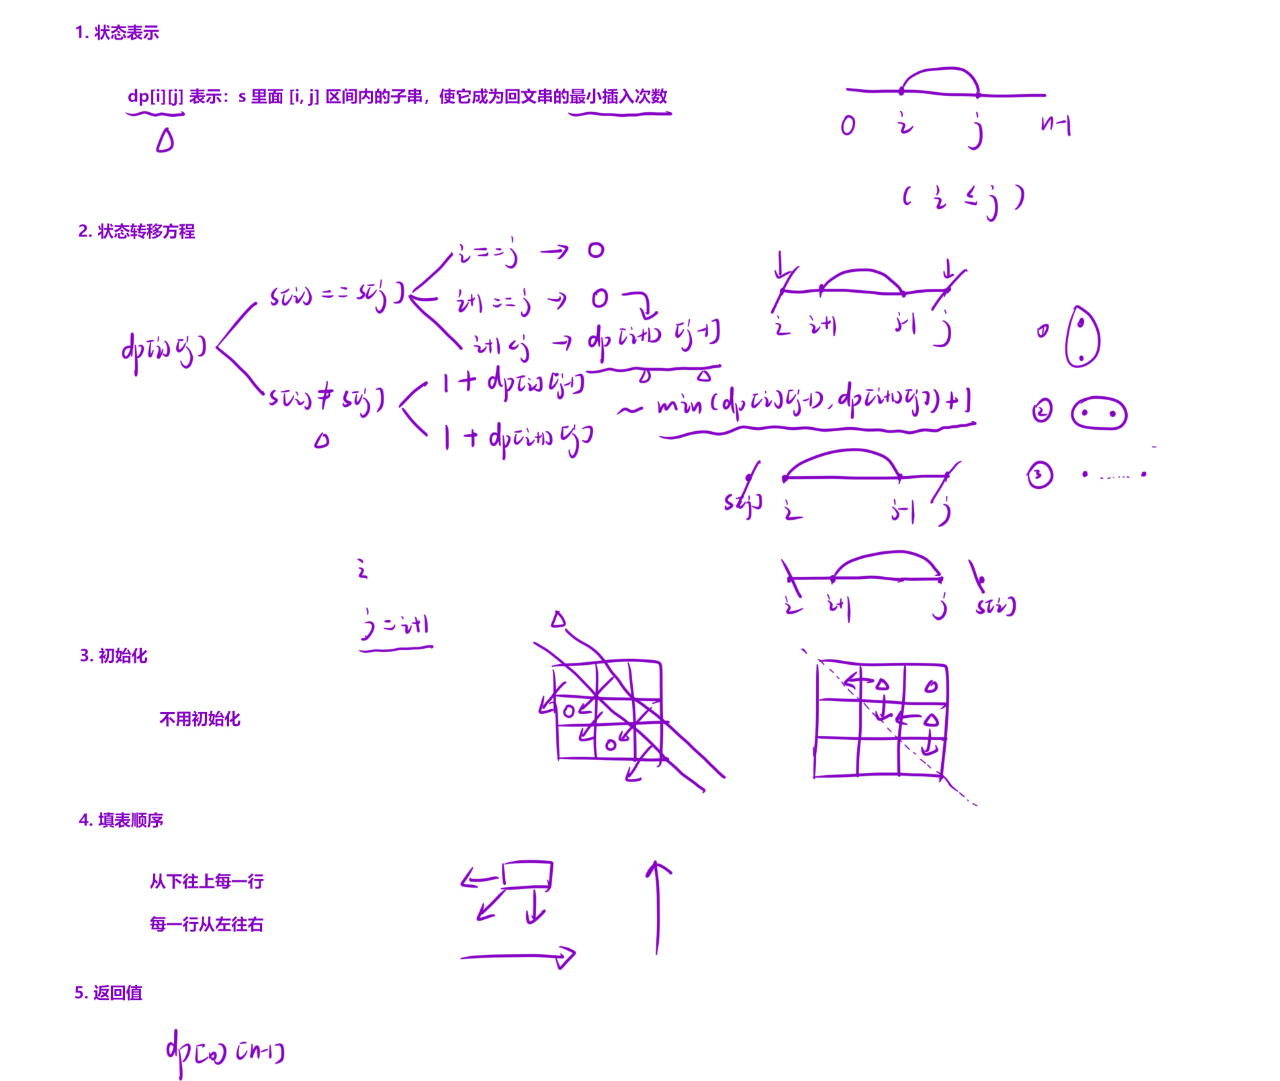 1. 状态表示
dp[i][j] 表示：s 里面 [i, j] 区间内的子串，使它成为回文串的最小插入次数
0 i j n-1
( i ≤ j )
2. 状态转移方程
dp[i][j]
s[i] == s[j]
i == j → 0
i+1 == j → 0
i+1 < j → dp[i+1][j-1]
s[i] ≠ s[j]
1 + dp[i][j-1]
1 + dp[i+1][j]
~ min(dp[i][j-1], dp[i+1][j]) + 1
i i+1 j-1 j
①
②
③
s[j] i j-1 j
i i+1 j s[i]
i
j = i+1
3. 初始化
不用初始化
4. 填表顺序
从下往上每一行
每一行从左往右
5. 返回值
dp[0][n-1]